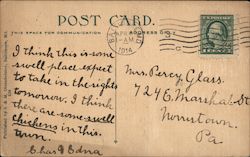 POST CARD.
THIS SPACE FOR COMMUNICATION
ADDRESS
1914
AM
I think this is some
swell place expect
to take in the sights
tomorrow. I think
there are some swell
chickens in this
town.
Chas & Edna
Mrs. Percy Glass.
724 E. Marshal St
Norristown.
Pa.